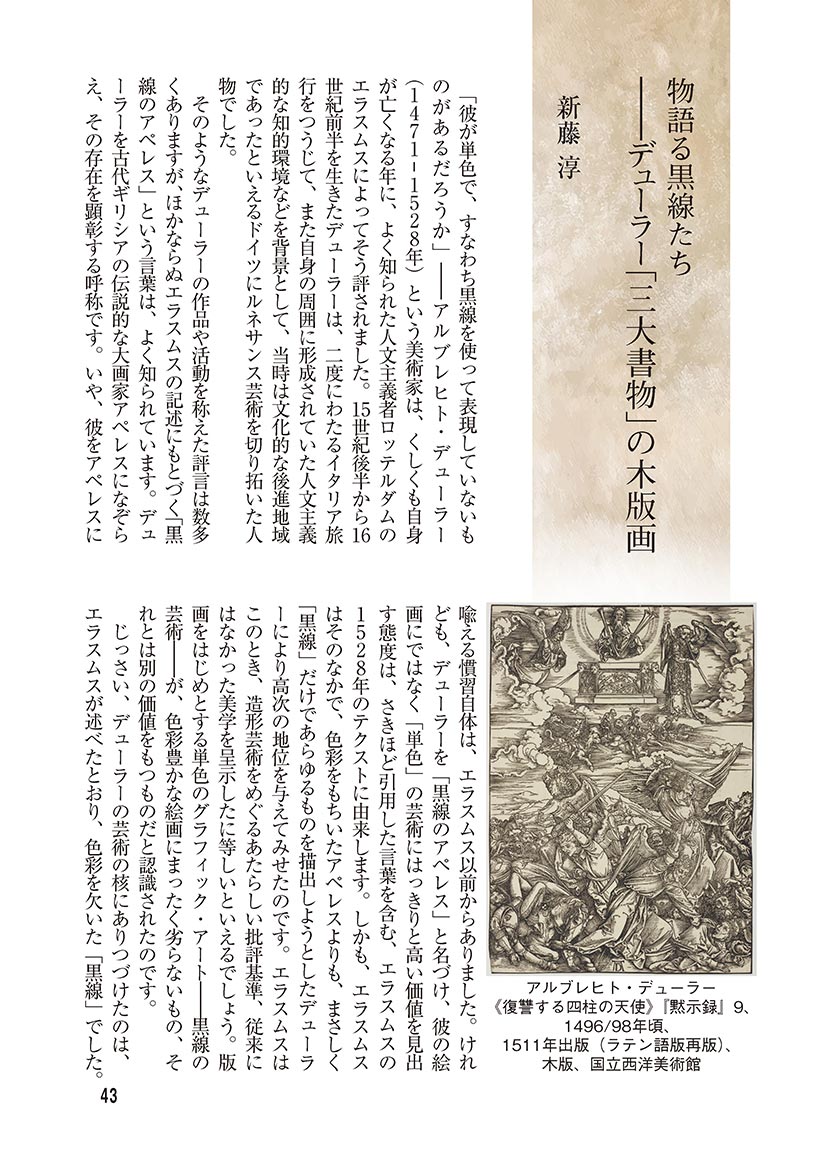 物語る黒線たち
――デューラー「三大書物」の木版画
新藤 淳
「彼が単色で、すなわち黒線を使って表現していないも
のがあるだろうか」――アルブレヒト・デューラー
(1471-1528年)という美術家は、くしくも自身
が亡くなる年に、よく知られた人文主義者ロッテルダムの
エラスムスによってそう評されました。15世紀後半から16
世紀前半を生きたデューラーは、二度にわたるイタリア旅
行をつうじて、また自身の周囲に形成されていた人文主義
的な知的環境などを背景として、当時は文化的な後進地域
であったといえるドイツにルネサンス芸術を切り拓いた人
物でした。
そのようなデューラーの作品や活動を称えた評言は数多
くありますが、ほかならぬエラスムスの記述にもとづく「黒
線のアペレス」という言葉は、よく知られています。デュ
ーラーを古代ギリシアの伝説的な大画家アペレスになぞら
え、その存在を顕彰する呼称です。いや、彼をアペレスに
喩える慣習自体は、エラスムス以前からありました。けれ
ども、デューラーを「黒線のアペレス」と名づけ、彼の絵
画にではなく「単色」の芸術にはっきりと高い価値を見出
す態度は、さきほど引用した言葉を含む、エラスムスの
1528年のテクストに由来します。しかも、エラスムス
はそのなかで、色彩をもちいたアペレスよりも、まさしく
「黒線」だけであらゆるものを描出しようとしたデューラ
ーにより高次の地位を与えてみせたのです。エラスムスは
このとき、造形芸術をめぐるあたらしい批評基準、従来に
はなかった美学を呈示したに等しいといえるでしょう。版
画をはじめとする単色のグラフィック・アート――黒線の
芸術――が、色彩豊かな絵画にまったく劣らないもの、そ
れとは別の価値をもつものだと認識されたのです。
じっさい、デューラーの芸術の核にありつづけたのは、
エラスムスが述べたとおり、色彩を欠いた「黒線」でした。
アルブレヒト・デューラー
《復讐する四柱の天使》『黙示録』9、
1496/98年頃、
1511年出版(ラテン語版再版)、
木版、国立西洋美術館
43